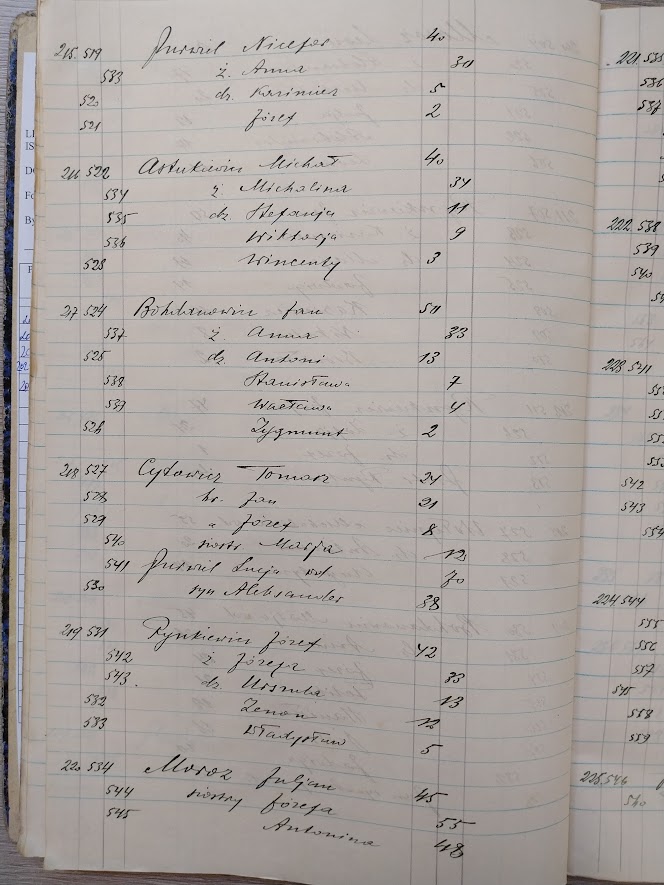 215 519 Jurwil Nicefor 40
533 ż. Anna 30
520 dz. Kazimier 5
521 Józef 2
216 522 Michał 40
534 ż Michalina 34
535 dz Stefanja 11
536 Wiktorja 9
523 Wincenty 3
217 524 Bohdanowicz Jan 50
537 ż. Anna 33
525 dz. Antoni 13
538 Stanisława 7
537 Wacława 4
526 Zygmunt 2
218 527 Cytowicz Tomasz 24
528 br. Jan 21
529 " Józef 8
540 siostr Marja 12
541 Jurwil Lucja wd 70
530 syn Aleksander 38
219 531 Rynkiewicz Józef 42
542 ż. Józefa 33
543. dz. 13
532 Zenon 12
533 Władysław 5
220 534 Moroz Juljan 45
544 siostry Józefa 55
545 Antonina 48
221 535
536
537
222 538
539
540
223 541
542
543
554
224 544
555
556
557
545
558
559
225 546
560